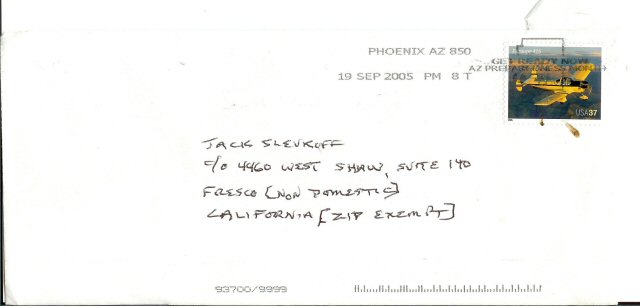 PHOENIX AZ 850
19 SEP 2005 PM 8 T
GET READY NOW
USA37
JACK SLEVKOFF
c/o 4460 WEST SHAW, SUITE 140
FRESCO [NON DOMESTIC]
CALIFORNIA [ZIP EXEMPT]
93700/9999